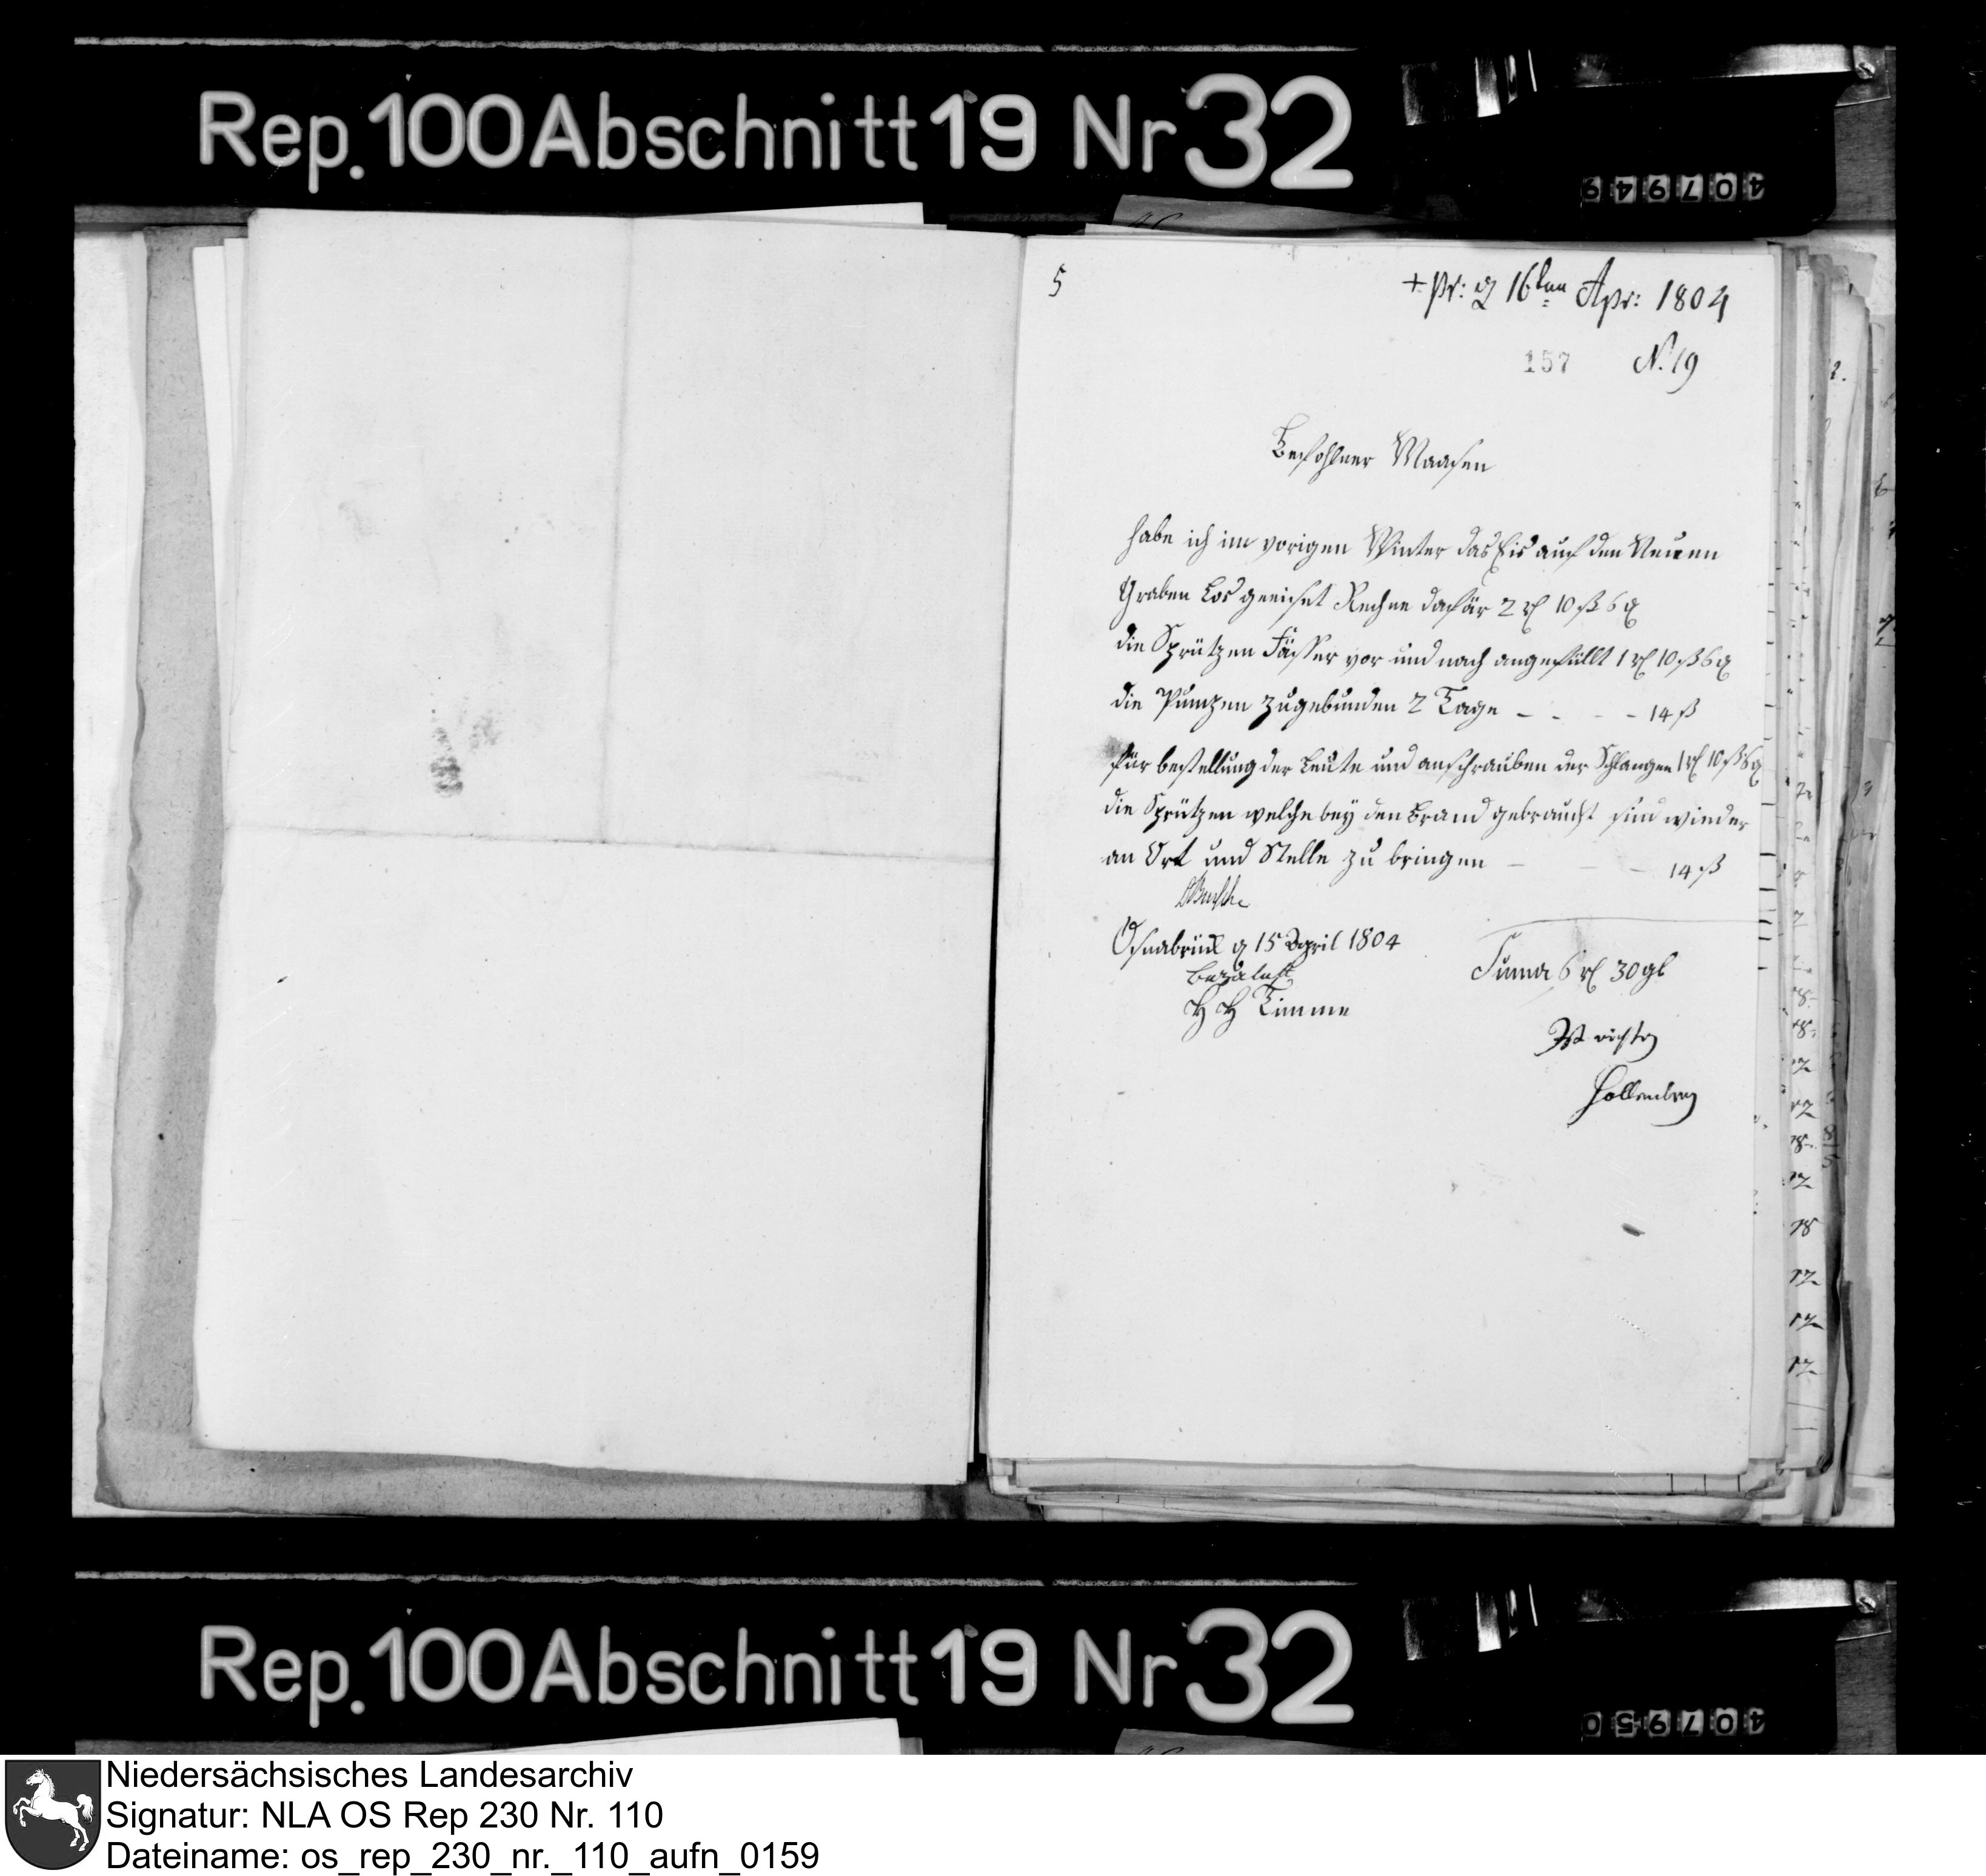 Rep. 100 Abschnitt 19 Nr 32
407949
5
+ pr: d 16ten Apr: 1804
157 N. 19
Befohlner Maasen
habe ich im vorigen Winter das Eis auf den Neuen
Graben Los geeiset Rechne dafür 2 rl 10 ß 6 d
die Sprützen Fässer vor und nach angefüllt 1 rl 10 ß 6 d
die Pumpen zugebunden 2 Tage - - - - 14 ß
für bestellung der Leute und anschrauben der Schlangen 1 rl 10 ß 6 d
die Sprützen welche bey den Brand gebraucht sind wieder
an Ort und Stelle zu bringen - - - 14 ß
Osnabrück d 15 April 1804
Suma 6 rl 30 gl
bezalt
H H Timme
Ist richtig
Hollenberg
Rep. 100 Abschnitt 19 Nr 32
407950
Niedersächsisches Landesarchiv
Signatur: NLA OS Rep 230 Nr. 110
Dateiname: os_rep_230_nr._110_aufn_0159